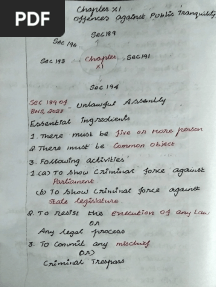 PDF
Chapter XI
offences against Public Tranquility
Sec 189
Sec 190
Sec 193 Chapter XI Sec 191
Sec 194
Sec 189 of BNS 2023 Unlawful Assembly
Essential Ingredients
1. There must be five or more person
2. There must be Common object
3. Following activities
1. (a) To show Criminal force against
Parliament
(b) To show Criminal force against
State legislature
2. To Resist the execution of any Law
OR
Any legal process
3. To commit any mischief
OR)
Criminal Trespass